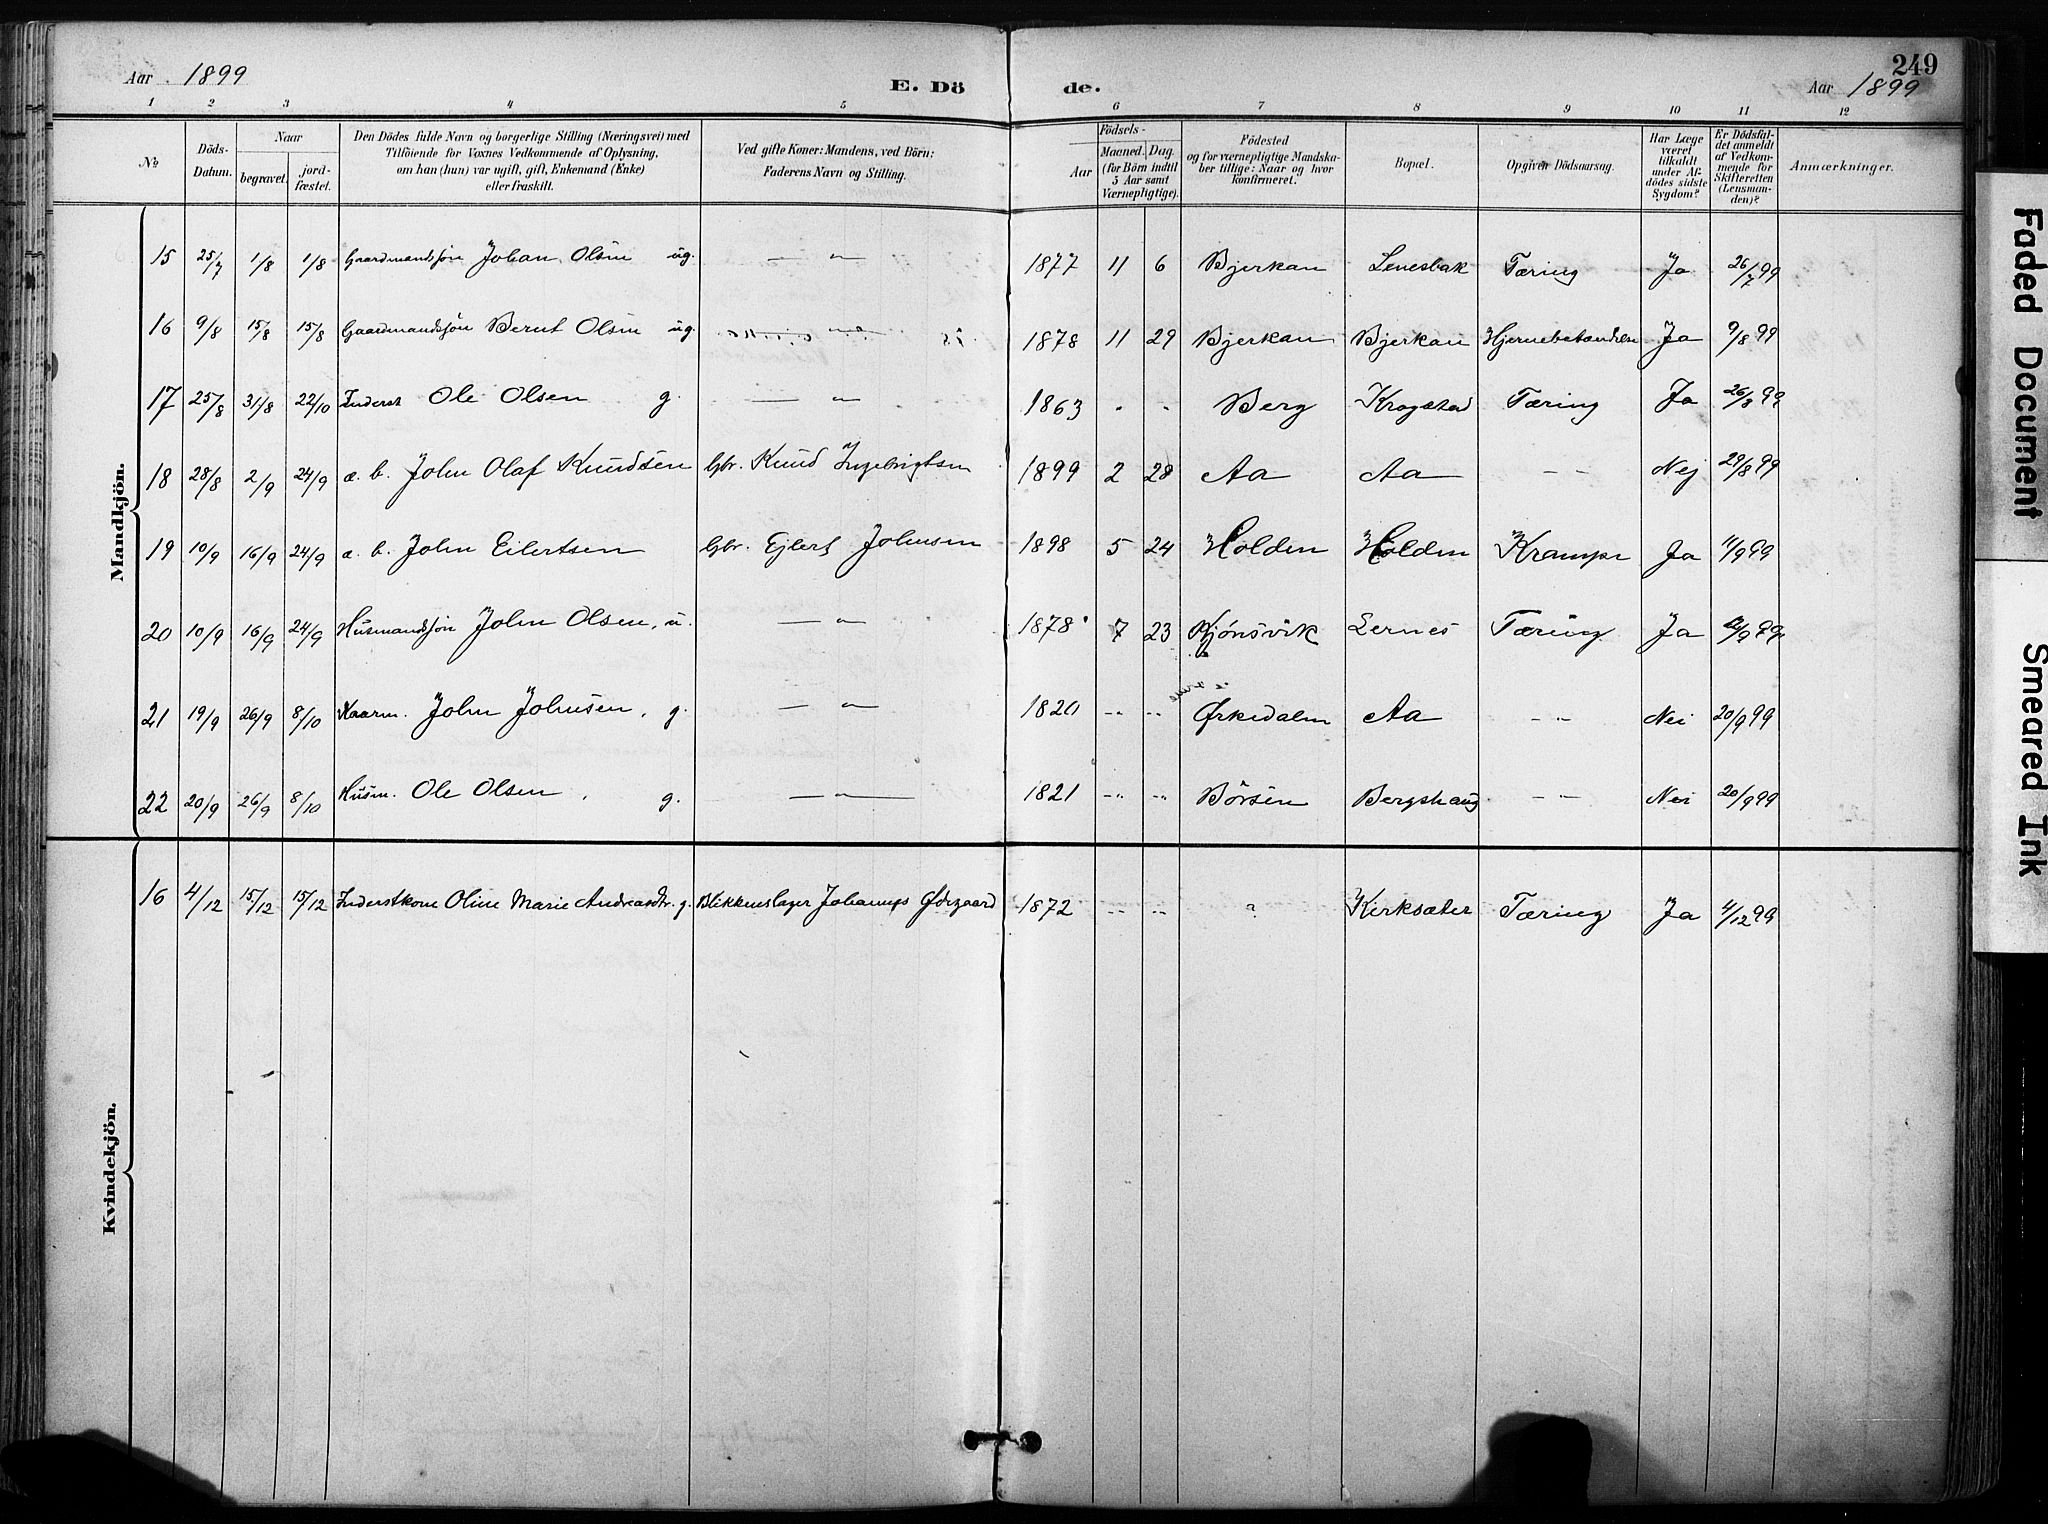 249
Aar 1899 E. Dö de. Aar 1899
1 2 3 4 5 6 7 8 9 10 11 12
№
Döds-Datum.
Naar
begravet. jord-fæstet.
Den Dödes fulde Navn og borgerlige Stilling (Næringsvei) med
Tilföiende for Voxnes Vedkommende af Oplysning,
om han (hun) var ugift, gift, Enkemand (Enke)
eller fraskilt.
Ved gifte Koner: Mandens, ved Börn:
Faderens Navn og Stilling.
Födsels-
Aar Maaned. Dag.
(for Börn indtil
5 Aar samt
Værnepligtige).
Födested
og for værnepligtige Mandska-
ber tillige: Naar og hvor
konfirmeret.
Bopæl.
Opgiven Dödsaarsag.
Har Læge
været
tilkaldt
under Af-
dödes sidste
Sygdom?
Er Dödsfal-
det anmeldt
af Vedkom-
mende for
Skifteretten
(Lensman-
den)?
Anmærkninger.
Mandkjön.
15 25/7 1/8 1/8 Gaardmandssön Johan Olsen ug. — " — 1877 11 6 Bjerkan Lenesbak Tæring Ja 26/7 99
16 9/8 15/8 15/8 Gaardmandssön Bernt Olsen ug. — " — 1878 11 29 Bjerkan Bjerkan Hjernebetændelse Ja 9/8 99
17 25/8 31/8 22/10 Inderst Ole Olsen g. — " — 1863 " " Berg Krogstad Tæring Ja 26/8 99
18 28/8 2/9 24/9 æ. b. John Olaf Knudsen Gbr. Knud Ingebrigtsen 1899 2 28 Aa Aa — — Nej 29/8 99
19 10/9 16/9 24/9 æ. b. John Eilertsen Gbr. Ejlert Johnsen 1898 5 24 Holden Holden Krampe Ja 11/9 99
20 10/9 16/9 24/9 Husmandssön John Olsen, u. — " — 1878 7 23 Kjönsvik Lernes Tæring Ja 12/9 99
21 19/9 26/9 8/10 Kaarm. John Johnsen, g. — " — 1820 -"- -"- Ørkedalen Aa -"- Nei 20/9 99
22 20/9 26/9 8/10 Husm. Ole Olsen, g. — " — 1821 -"- -"- Börsen Bergshaug -"- Nei 20/9 99
Kvindekjön.
16 4/12 15/12 15/12 Inderstkone Oline Marie Andreasdtr. g. Blikkenslager Johannes Ødegaard 1872 -"- -"- ? Kirksæter Tæring Ja 4/12 99
Faded Document
Smeared Ink